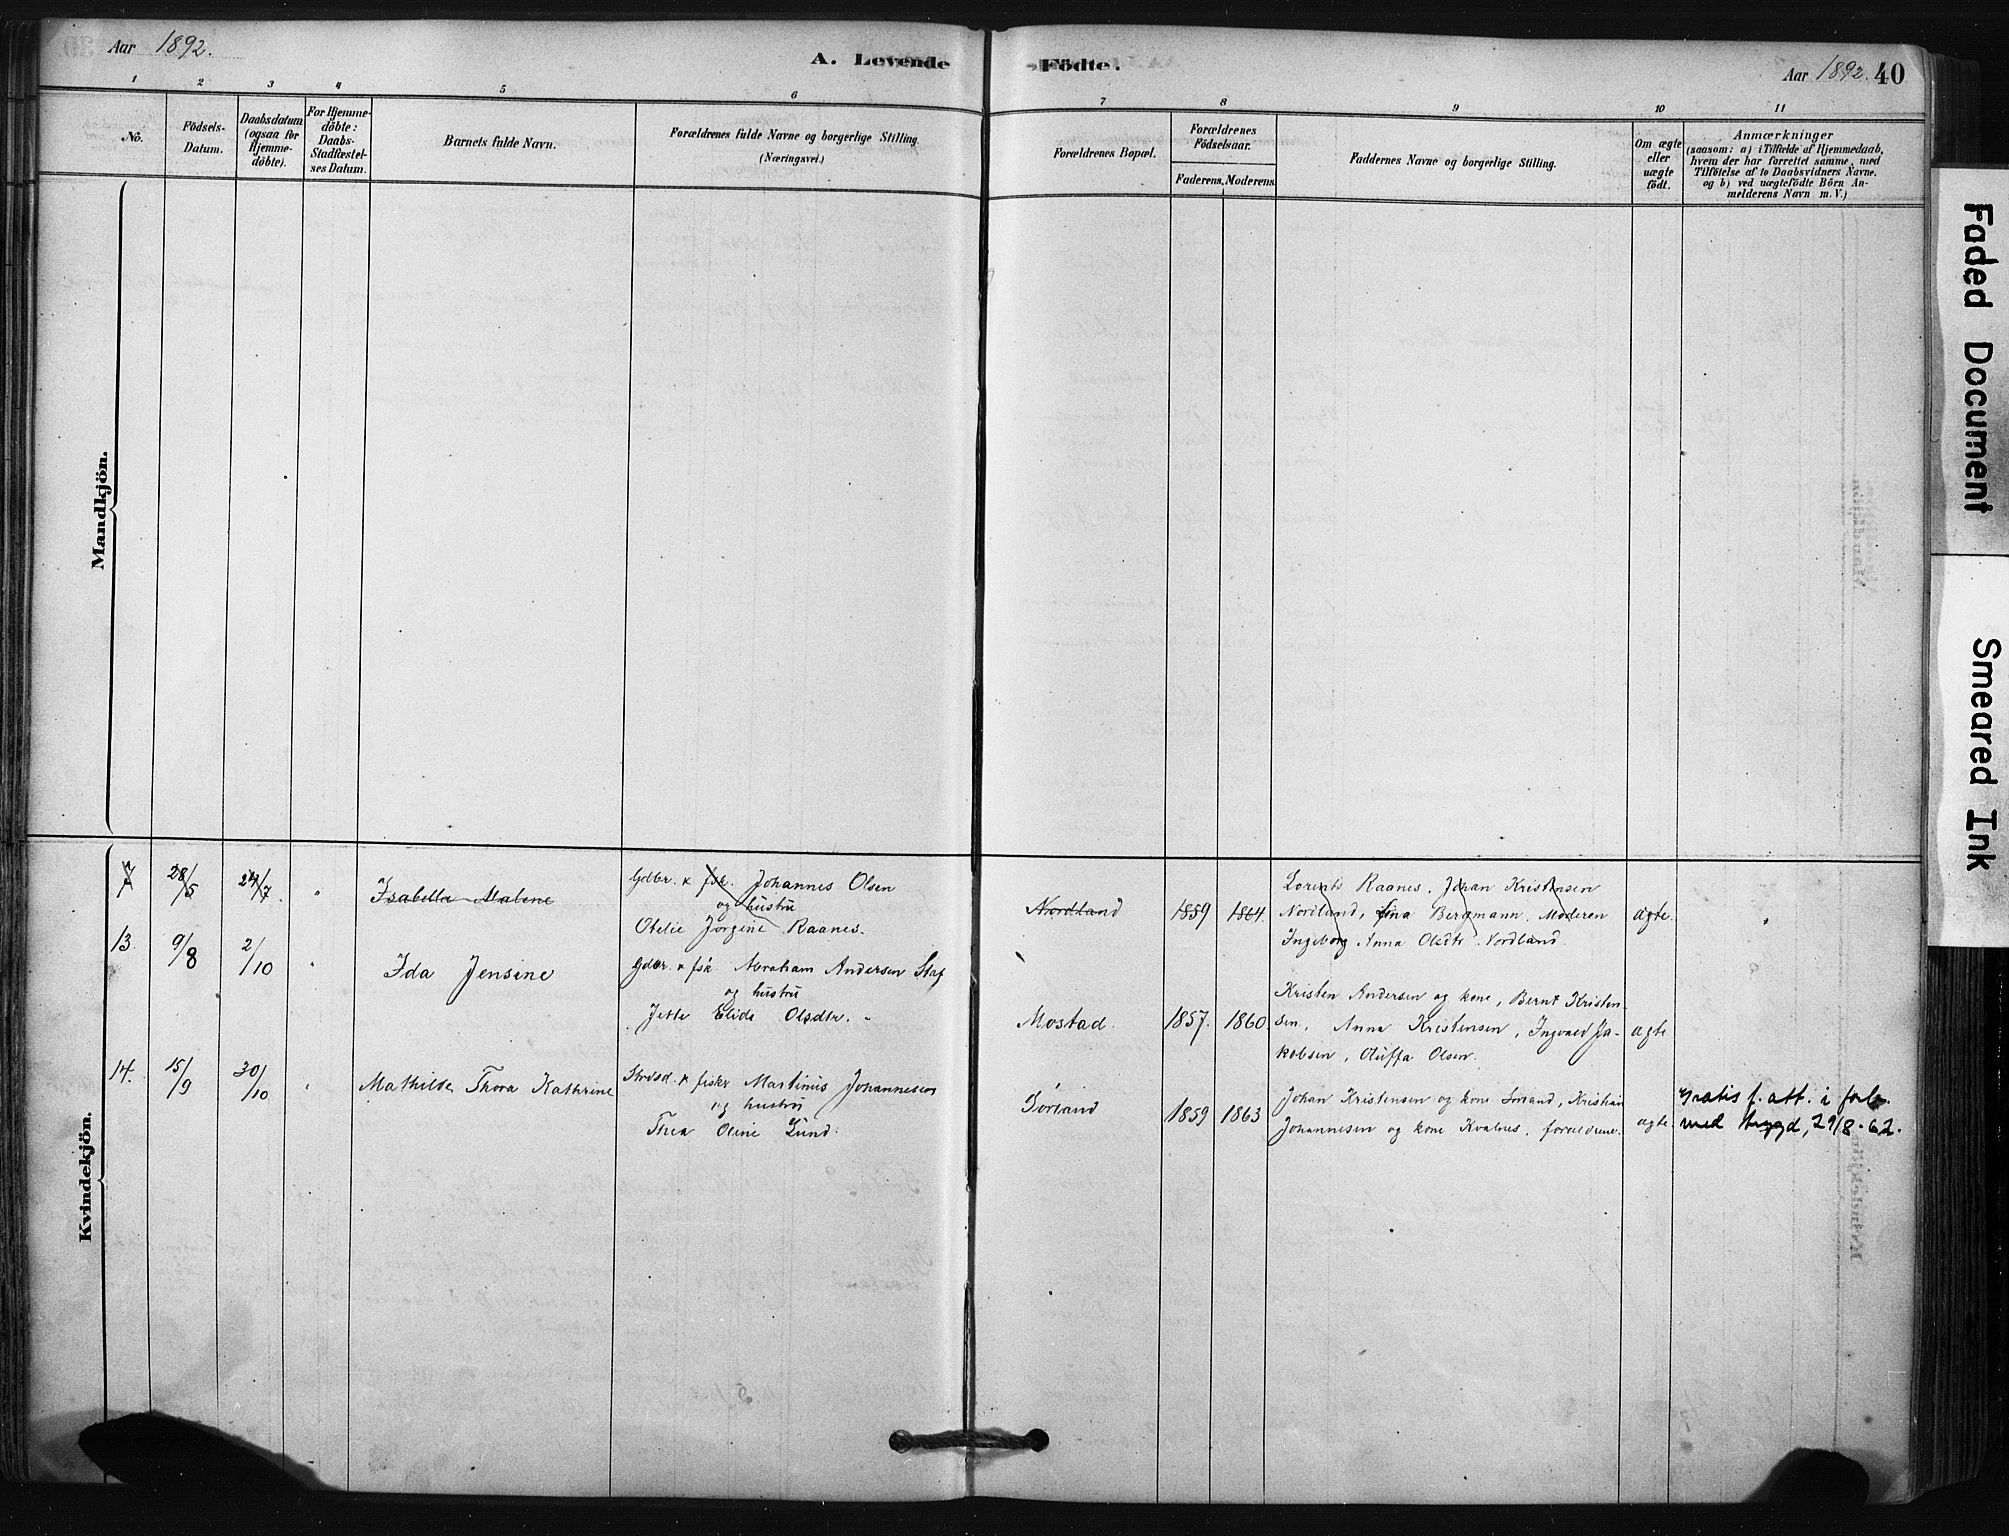 Aar 1892.
A. Levende Födte.
Aar 1892. 40
1 2 3 4 5 6 7 8 9 10 11
No.
Födsels-
Datum.
Daabsdatum
(ogsaa for
Hjemme-
döbte).
For Hjemme-
döbte:
Daabs-
Stadfæstel-
ses Datum.
Barnets fulde Navn.
Forældrenes fulde Navne og borgerlige Stilling.
(Næringsvei.)
Forældrenes Bopæl.
Forældrenes
Födselsaar.
Faderens. Moderens.
Faddernes Navne og borgerlige Stilling.
Om ægte
eller
uægte
födt.
Anmærkninger
(saasom: a) i Tilfælde af Hjemmedaab,
hvem der har forrettet samme, med
Tilföielse af to Daabsvidners Navne.
og b) ved uægtefödte Börn An-
melderens Navn m. V.)
Mandkjön.
Kvindekjön.
28/5 24/7 " Isabella Malene
Gdbr. & fsk. Johannes Olsen
og hustru
Otelie Jörgine Raanes.
Nordland 1859 1864.
Lorents Raanes. Johan Kristensen
Nordland, Bergmann. Moderen
Ingeborg Anna Olsdtr Nordland.
ægte. "
13. 9/8 2/10 " Ida Jensine
Gdbr. & fsk. Abraham Andersen
og hustru
Jette Elida Olsdtr.
Mostad. 1857. 1860.
Kristen Andersen og kone, Bernt Kristen-
sen, Anna Kristensen, Ingvald Ja-
kobsen, Oluffa Olsen.
ægte
14. 15/9 30/10 " Mathilde Thora Kathrine
Strdsd. & fisker Martinus Johannesen
og hustru
Thea Oline Lund.
Sörland 1859 1863
Johan Kristensen og kone Sörland, Kristian
Johannesen og kone Kvalnes, forældrene.
ægte.
Gratis f. att. i forb.
med trygd, 29/8-62.
Faded Document
Smeared Ink